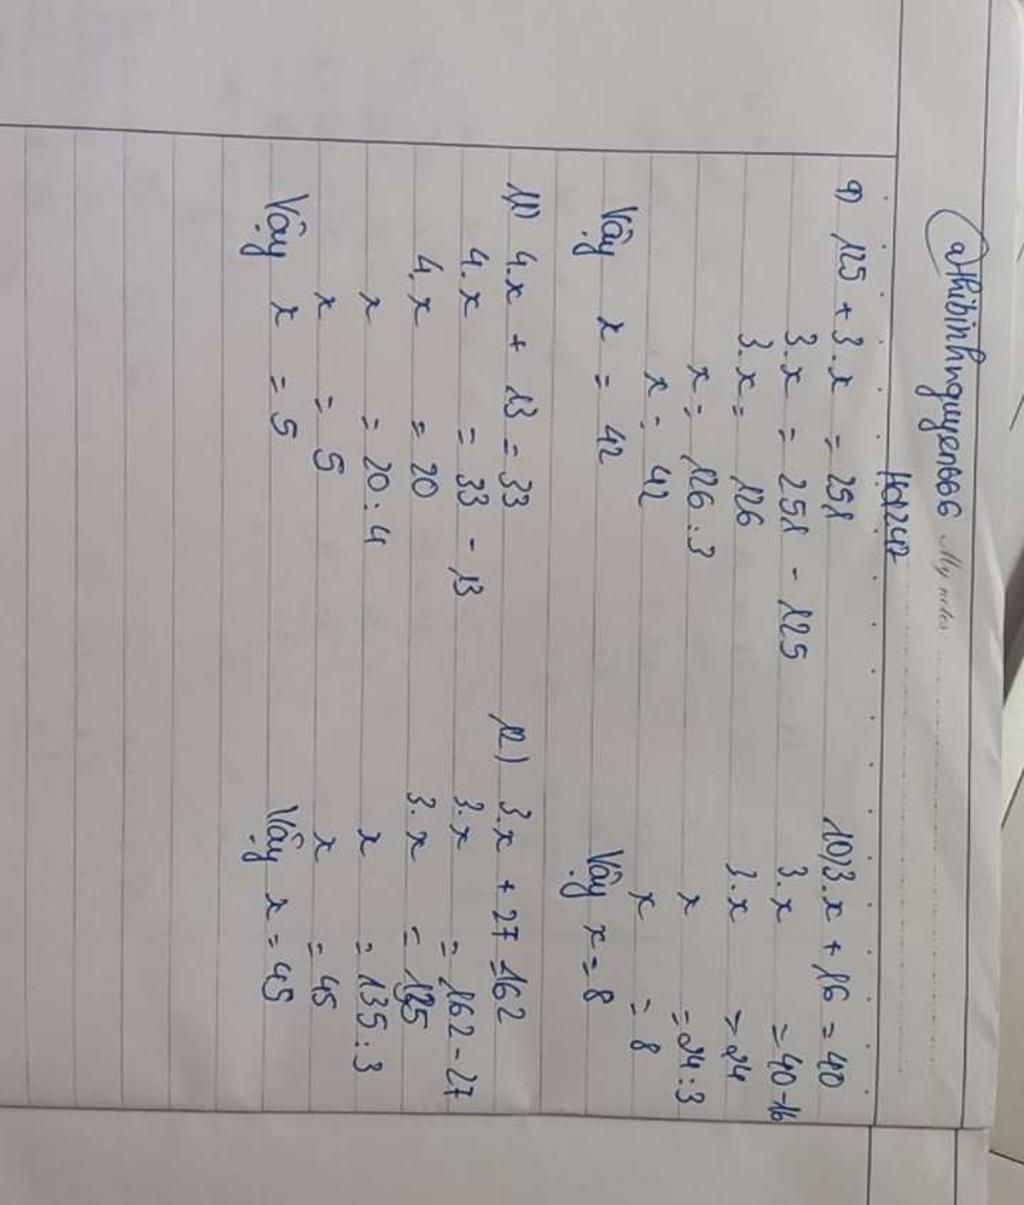 @thibinhnguyen666 My notes
Hd247
9) 125 + 3.x = 251
3.x = 251 - 125
3.x = 126
x = 126 : 3
x = 42
Vậy x = 42
10) 3.x + 16 = 40
3.x = 40 - 16
3.x = 24
x = 24 : 3
x = 8
Vậy x = 8
11) 4.x + 13 = 33
4.x = 33 - 13
4.x = 20
x = 20 : 4
x = 5
Vậy x = 5
12) 3.x + 27 = 162
3.x = 162 - 27
3.x = 135
x = 135 : 3
x = 45
Vậy x = 45